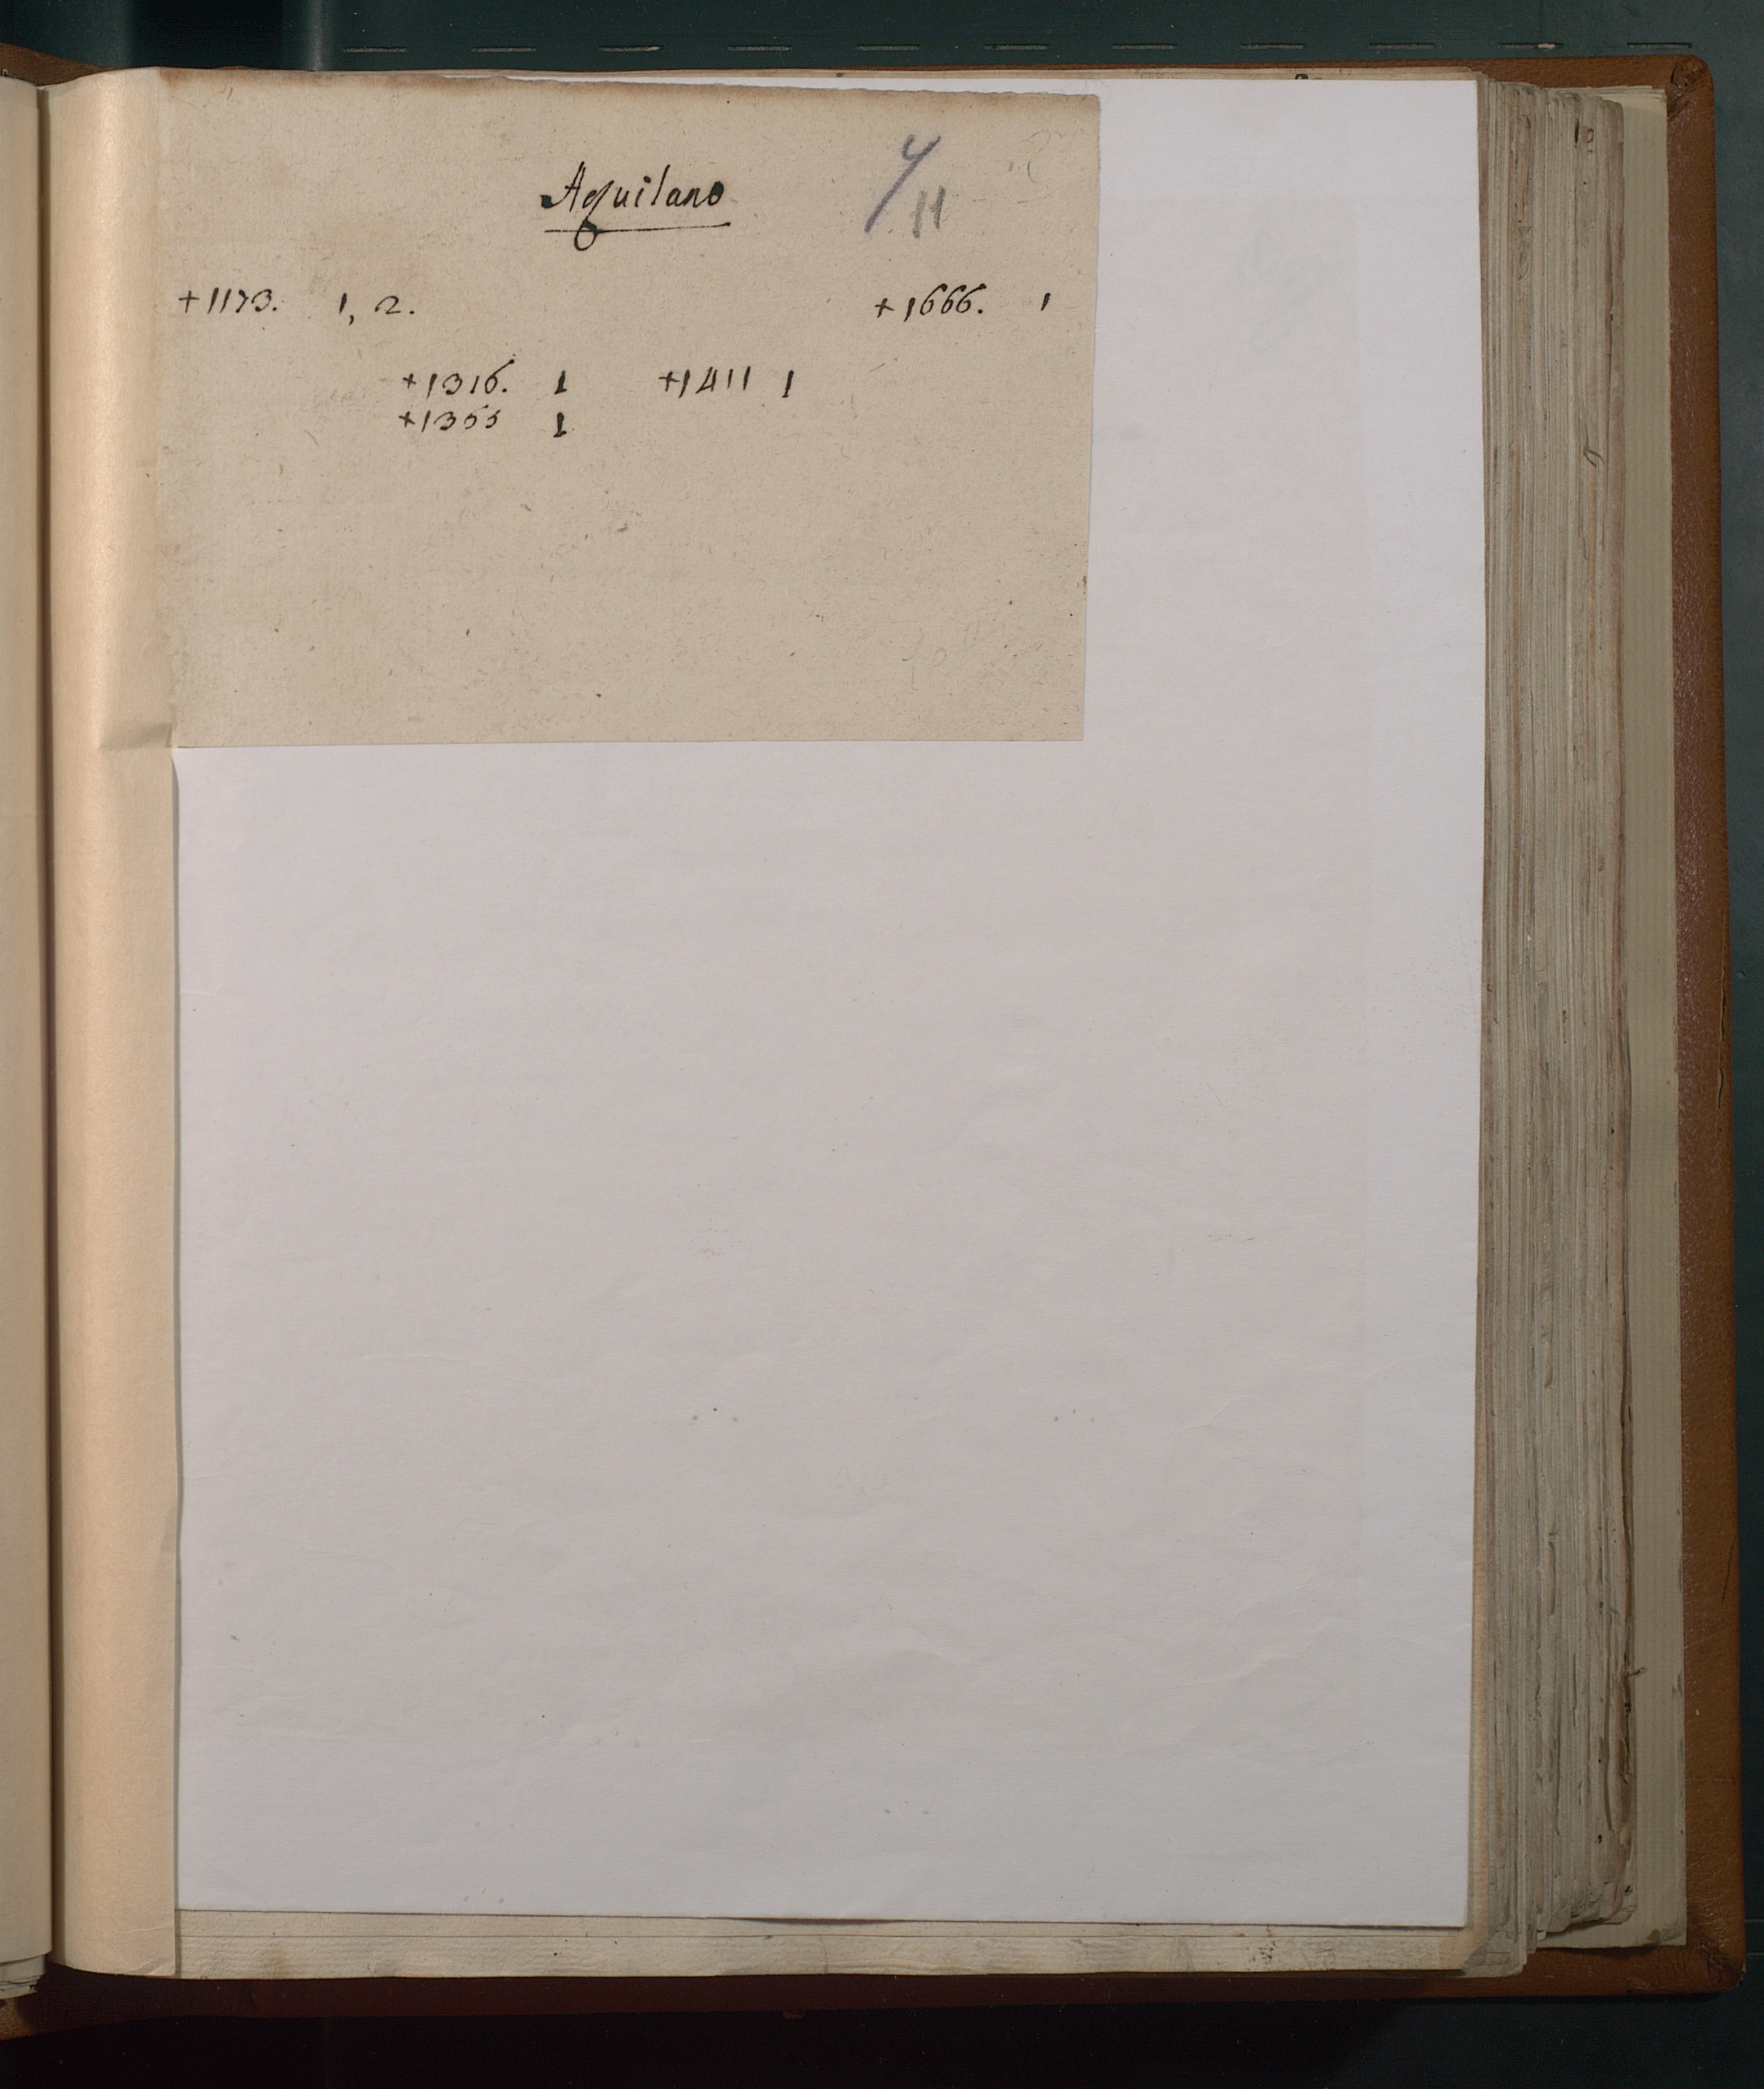 Aquilano
11
+1173. 1, 2. +1666. 1
+1316. 1 +1411 1
+1355 1